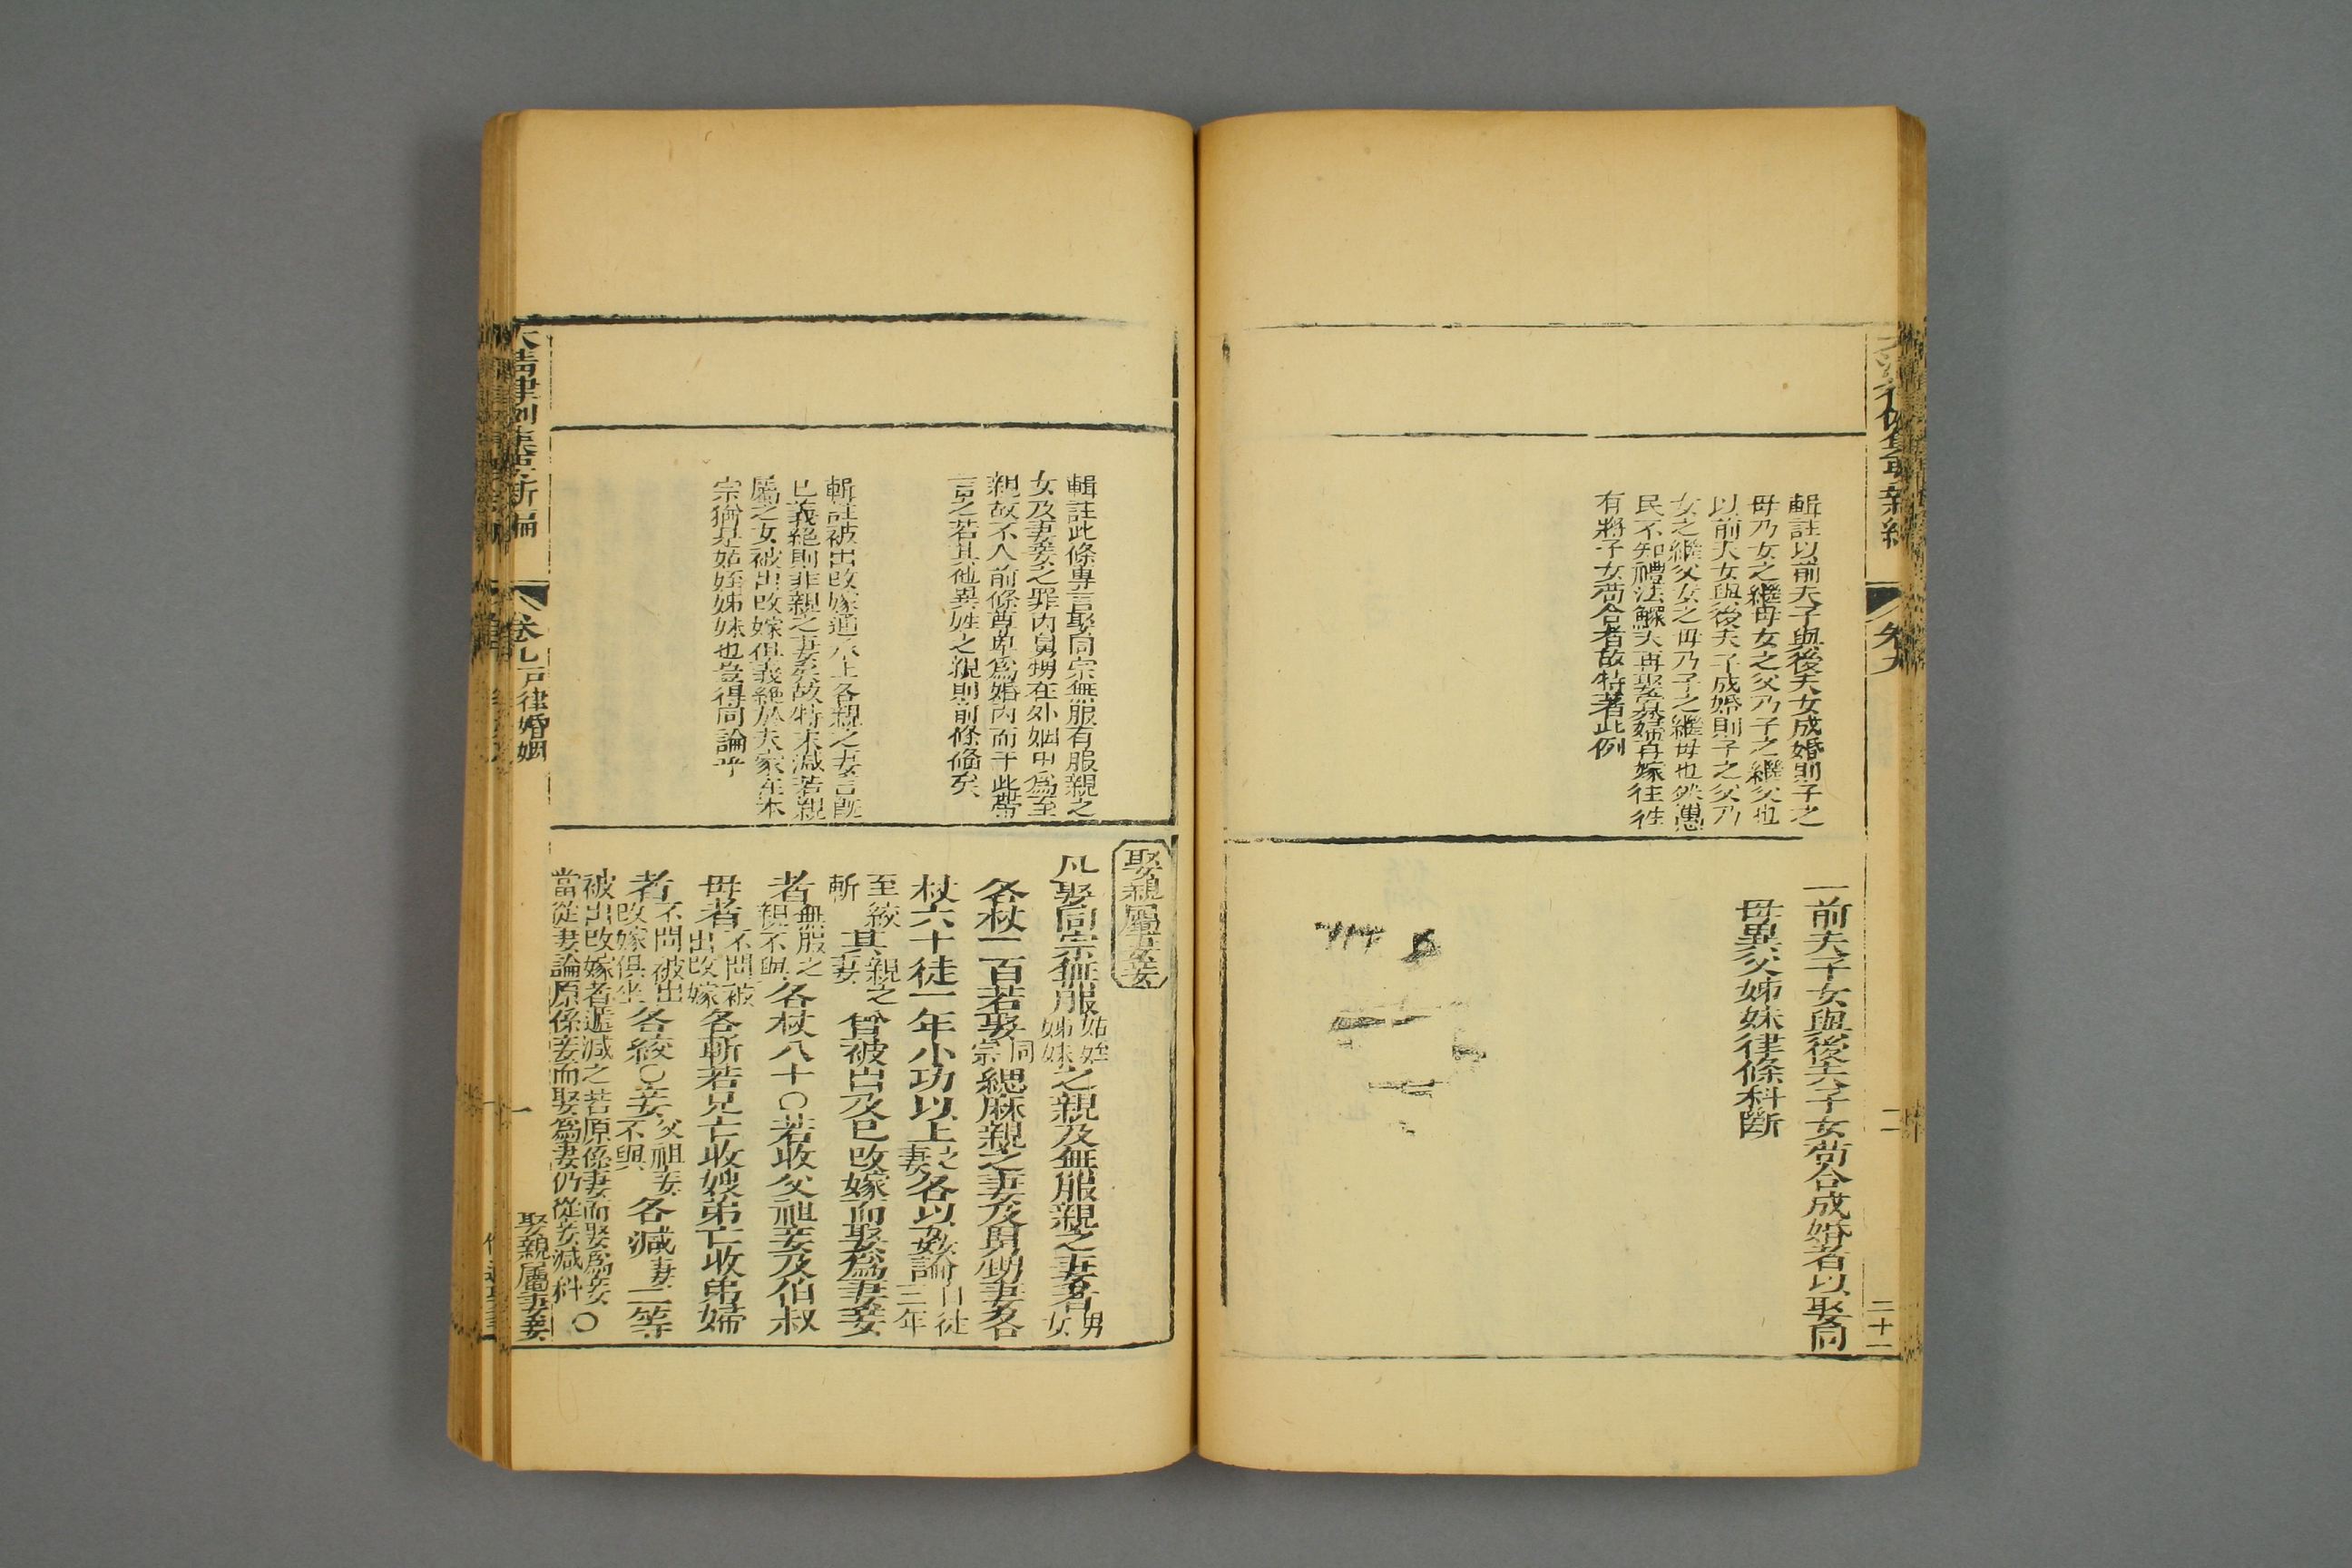 輯註以前夫子與後夫女成婚則子之
母乃女之繼母女之父乃子之繼父也
以前夫女與後夫子成婚則子之父乃
女之繼父女之母乃子之繼母也然愚
民不知禮法鰥夫再娶寡婦再嫁往往
有將子女苟合者故特著此例
一前夫子女與後夫子女苟合成婚者以娶同
母異父姊妹律條科斷
二十一
輯註此條專言娶同宗無服有服親之
女及妻妾之罪內舅甥在外姻中為至
親故不入前條尊卑為婚內而于此帶
言之若其他異姓之親則前條備矣
輯註被出改嫁通承上各親之妻言既
已義絕則非親之妻矣故特末減若親
屬之女被出改嫁但義絕於夫家在本
宗猶是姑姪姊妹也豈得同論乎
娶親屬妻妾
凡娶同宗無服姑姪姊妹之親及無服親之妻者男女
各杖一百若娶同宗緦麻親之妻及舅甥妻各
杖六十徒一年小功以上之妻各以姦論自徒三年
至絞斬其親之妻曾被出及已改嫁而娶為妻妾
者無服之親不與各杖八十〇若收父祖妾及伯叔
母者不問被出改嫁各斬若兄亡收嫂弟亡收弟婦
者不問被出改嫁俱坐各絞〇妾父祖妾不與各減妻二等
被出改嫁者遞減之若原係妻而娶為妾
當從妻論原係妾而娶為妻仍從妾減科〇
大清律例集要新編
卷九戶律婚姻
娶親屬妻妾